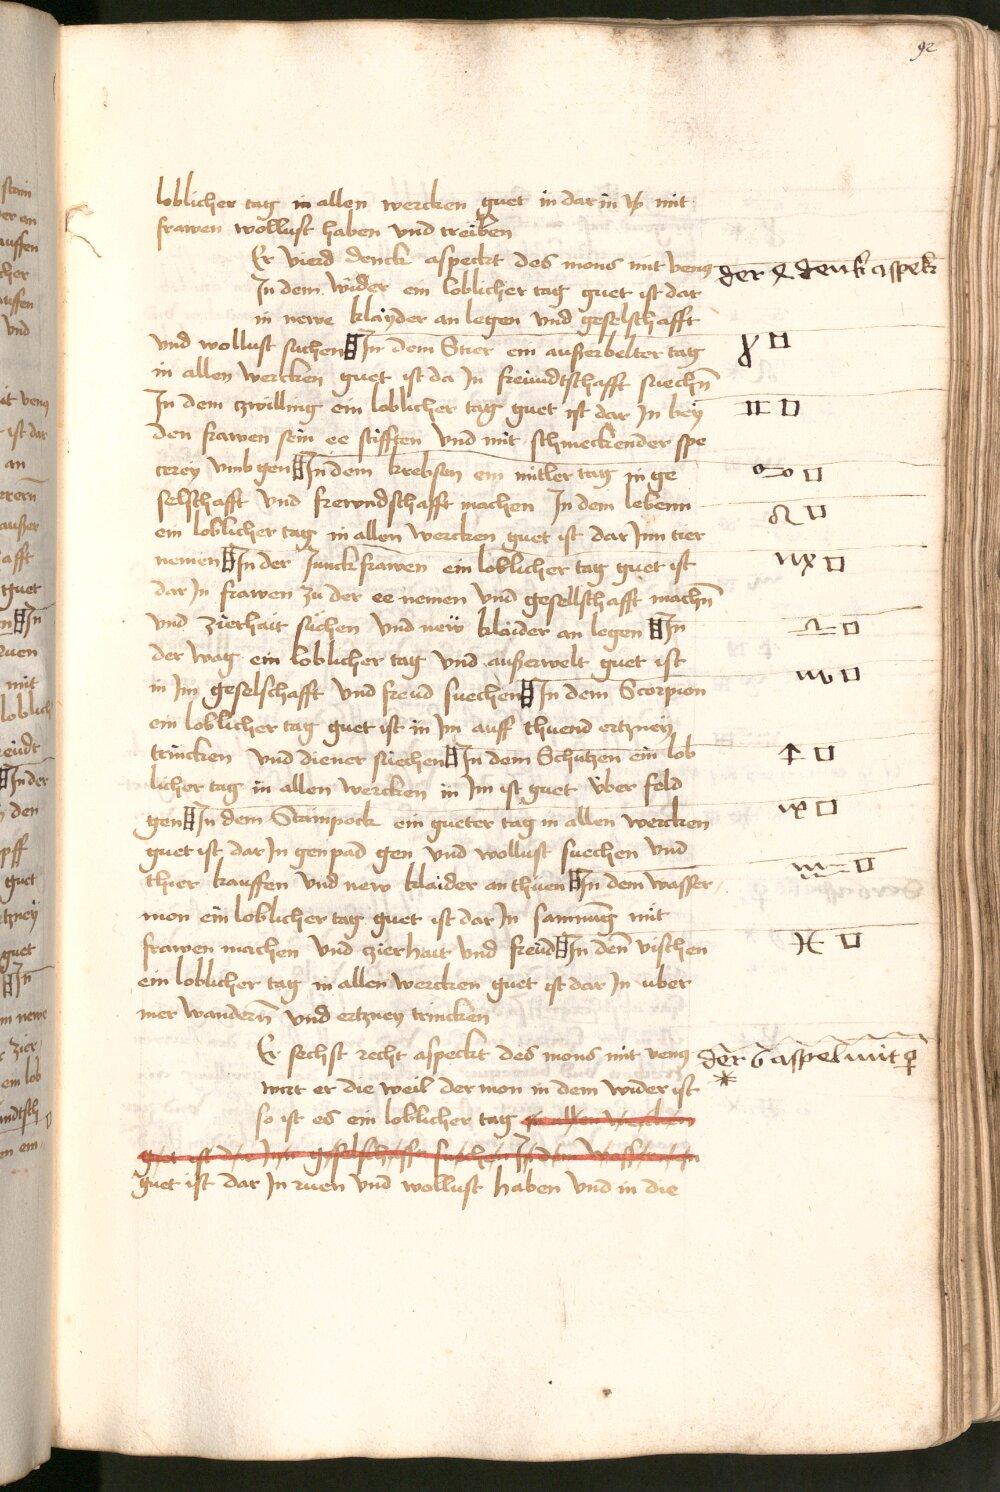 92
loblicher tag in allen wercken guet in dar in mit
frawen wollust haben vnd treiben
Er vierd denck aspeckt des mons mit venus
der 4 denk aspekt
In dem wider ein loblicher tag guet ist dar
in newe klayder an legen vnd geselschafft
vnd wollust suchen In dem Stier ein außerbelter tag
♉ □
in allen wercken guet ist da In freundtschafft suechn
In dem zwilling ein loblicher tag guet ist dar In bey
♊ □
den frawen sein ee stifften vnd mit schmeckender spe
cerey vmb gen In dem krebsen ein mitler tag in ge
♋ □
selschafft vnd frewndschafft machen In dem lebenn
♌ □
ein loblicher tag in allen wercken guet ist dar Inn tier
nemen In der Junckfrawen ein loblicher tag guet ist
♍ □
dar In frawen zu der ee nemen vnd gesellschafft machn
vnd zierhait suchen vnd new klaider an legen In
♎ □
der wag ein loblicher tag vnd außerwelt guet ist
in Im geselschafft vnd freud suechen In dem Scorpion
♏ □
ein loblicher tag guet ist in Im auff thuend ertzney
trincken vnd diener suechen In dem Schutzen ein lob
♐ □
licher tag in allen wercken in Im ist guet vber feld
gen In dem Stainpock ein gueter tag in allen wercken
♑ □
guet ist dar In gen pad gen vnd wollust suechen vnd
thier kauffen vnd new klaider an thuen In dem wasser
♒ □
mon ein loblicher tag guet ist dar In samnung mit
frawen machen vnd zierhait vnd freud In den vischen
♓ □
ein loblicher tag in allen wercken guet ist dar In vber
mer wandern vnd ertzney trincken
Er sechst recht aspeckt des mons mit venus
der 6 aspek mit ♀
⚹
wirt er die weil der mon in dem wider ist
so ist es ein loblicher tag in allen wercken
guet ist dar Inn geselschafft suechen In dem
guet ist dar In ruen vnd wollust haben vnd in die